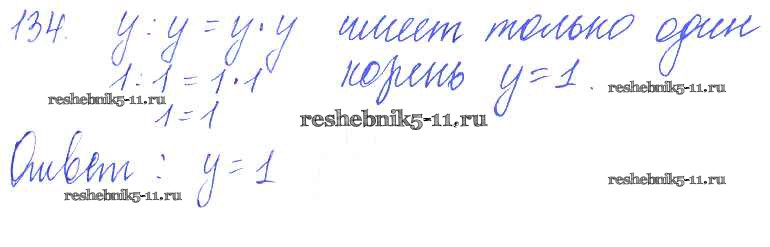 134. y : y = y · y имеет только один
1 : 1 = 1 · 1 корень y = 1.
reshebnik5-11.ru reshebnik5-11.ru
1 = 1 reshebnik5-11.ru
Ответ: y = 1
reshebnik5-11.ru reshebnik5-11.ru